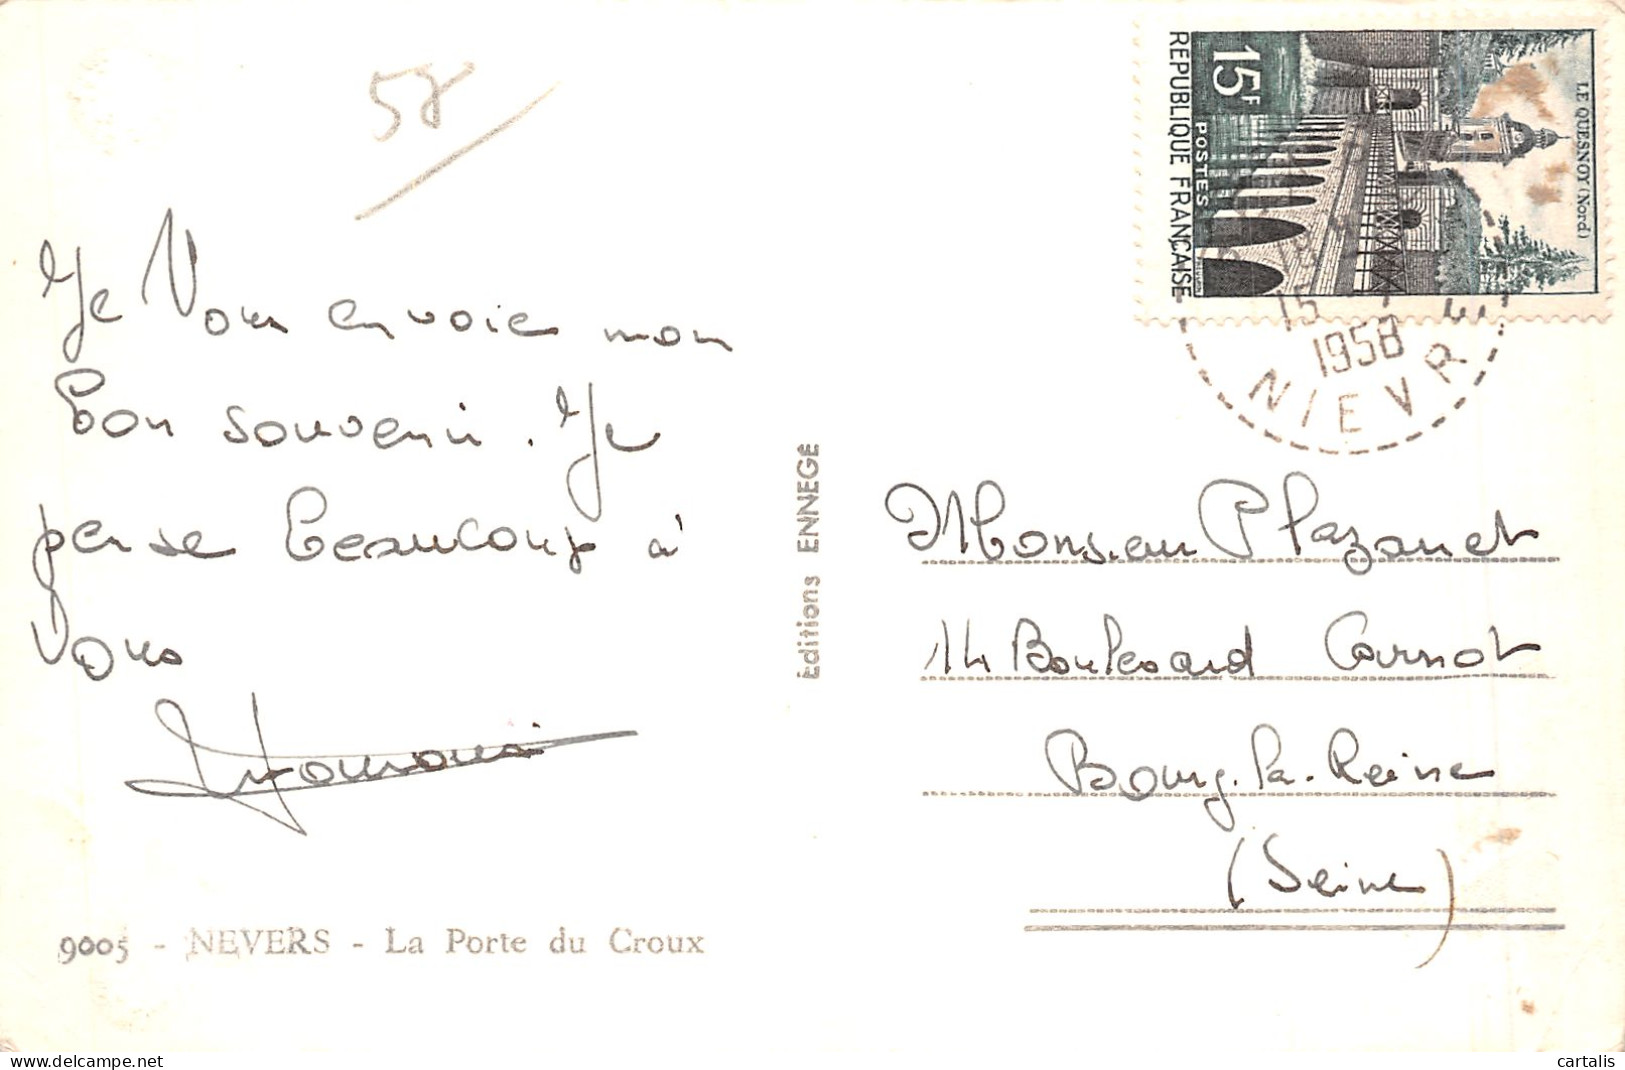 58
Je Vous envoie mon
bon souvenir. Je
pense beaucoup à
vous
9005 - NEVERS - La Porte du Croux
Éditions ENNEGÉ
15F
POSTES
REPUBLIQUE FRANÇAISE
LE QUESNOY (Nord)
15
1958
NIEVRE
Monsieur Plazanet
14 Boulevard Carnot
Bourg-la-Reine
(Seine)
cartalis